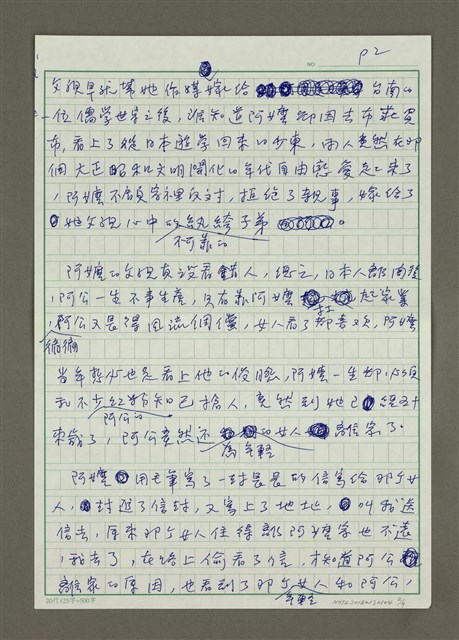 NO P2
父親早就幫她作媒嫁給 台南的
一位儒學世家之後,誰知道阿嬤卻因去布莊買
布,看上了從日本遊學回來的少東,兩人竟然在那
個大正昭和文明開化的年代自由戀愛起來了
,阿嬤不顧家裡反對,拒絕了親事,嫁給了
她父親心中的紈絝子弟 。
不可靠的
阿嬤的父親真沒看錯人,總之,日本人離開後
,阿公一生不事生產,只有靠阿嬤 起家業
,阿公又長得風流倜儻,女人看了都喜歡,阿嬤
當年熱心也是看上他的俊貌,阿嬤一生都必須
和不少紅粉知己搶人,竟然到她已經五十
阿公的
來歲了,阿公竟然還 的女人 離家了。
為年輕
阿嬤 用毛筆寫了一封長長的信寫給那個女
人, 封進了信封,又寫上了地址, 叫我送
信去,原來那個女人住得離阿嬤家也不遠
,我去了,在路上偷看了信,才知道阿公
離家的原因,也看到了那個女人和阿公,
年輕
20行×25字=500字